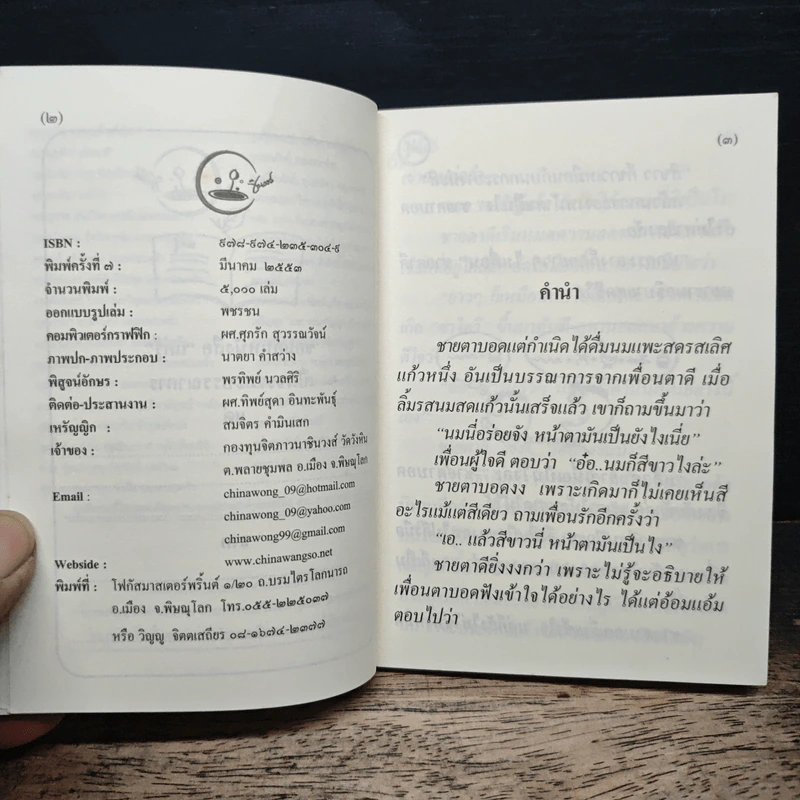 (๒)
ISBN : ๙๗๘-๙๗๔-๒๓๕-๓๐๔-๙
พิมพ์ครั้งที่ ๗ : มีนาคม ๒๕๕๓
จำนวนพิมพ์ : ๕,๐๐๐ เล่ม
ออกแบบรูปเล่ม : พชรชน
คอมพิวเตอร์กราฟฟิก : ผศ.ศุภรัก สุวรรณวัจน์
ภาพปก-ภาพประกอบ : นาตยา คำสว่าง
พิสูจน์อักษร : พรทิพย์ นวลศิริ
ติดต่อ-ประสานงาน : ผศ.ทิพย์สุดา อินทะพันธุ์
เหรัญญิก : สมจิตร คำมินเสก
เจ้าของ : กองทุนจิตภาวนาชินวงส์ วัดวังหิน
ต.พลายชุมพล อ.เมือง จ.พิษณุโลก
Email : chinawong_09@hotmail.com
chinawong_09@yahoo.com
chinawong99@gmail.com
Webside : www.chinawangso.net
พิมพ์ที่ : โฟกัสมาสเตอร์พริ้นต์ ๑/๒๐ ถ.บรมไตรโลกนารถ
อ.เมือง จ.พิษณุโลก โทร.๐๕๕-๒๒๕๐๓๗
หรือ วิญญู จิตตเสถียร ๐๘-๑๖๗๔-๒๓๗๗
(๓)
คำนำ
ชายตาบอดแต่กำเนิดได้ดื่มนมแพะสดรสเลิศ
แก้วหนึ่ง อันเป็นบรรณาการจากเพื่อนตาดี เมื่อ
ลิ้มรสนมสดแก้วนั้นเสร็จแล้ว เขาก็ถามขึ้นมาว่า
“นมนี่อร่อยจัง หน้าตามันเป็นยังไงเนี่ย”
เพื่อนผู้ใจดี ตอบว่า “อ๋อ..นมก็สีขาวไงล่ะ”
ชายตาบอดงง เพราะเกิดมาก็ไม่เคยเห็นสี
อะไรแม้แต่สีเดียว ถามเพื่อนรักอีกครั้งว่า
“เอ.. แล้วสีขาวนี่ หน้าตามันเป็นไง”
ชายตาดียิ่งงงกว่า เพราะไม่รู้จะอธิบายให้
เพื่อนตาบอดฟังเข้าใจได้อย่างไร ได้แต่อ้อมแอ้ม
ตอบไปว่า